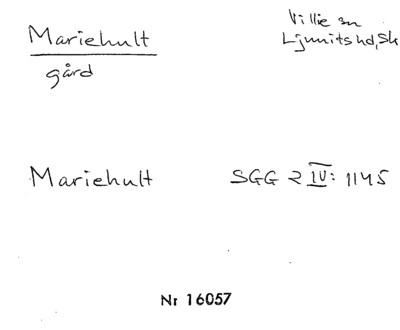 Mariehult
gård
Villie sn
Ljunits hd, Sk
Mariehult
SGG 2 IV: 1145
Nr 16057